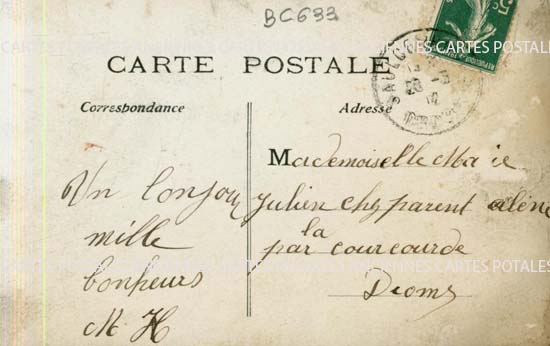 BC633
CARTE POSTALE
Correspondance
Adresse
Un bonjour
mille
bonheurs
M. H
Mademoiselle Marie
Julien chez parent
la
par courcourde
Drome
ANCIENNES CARTES POTALES